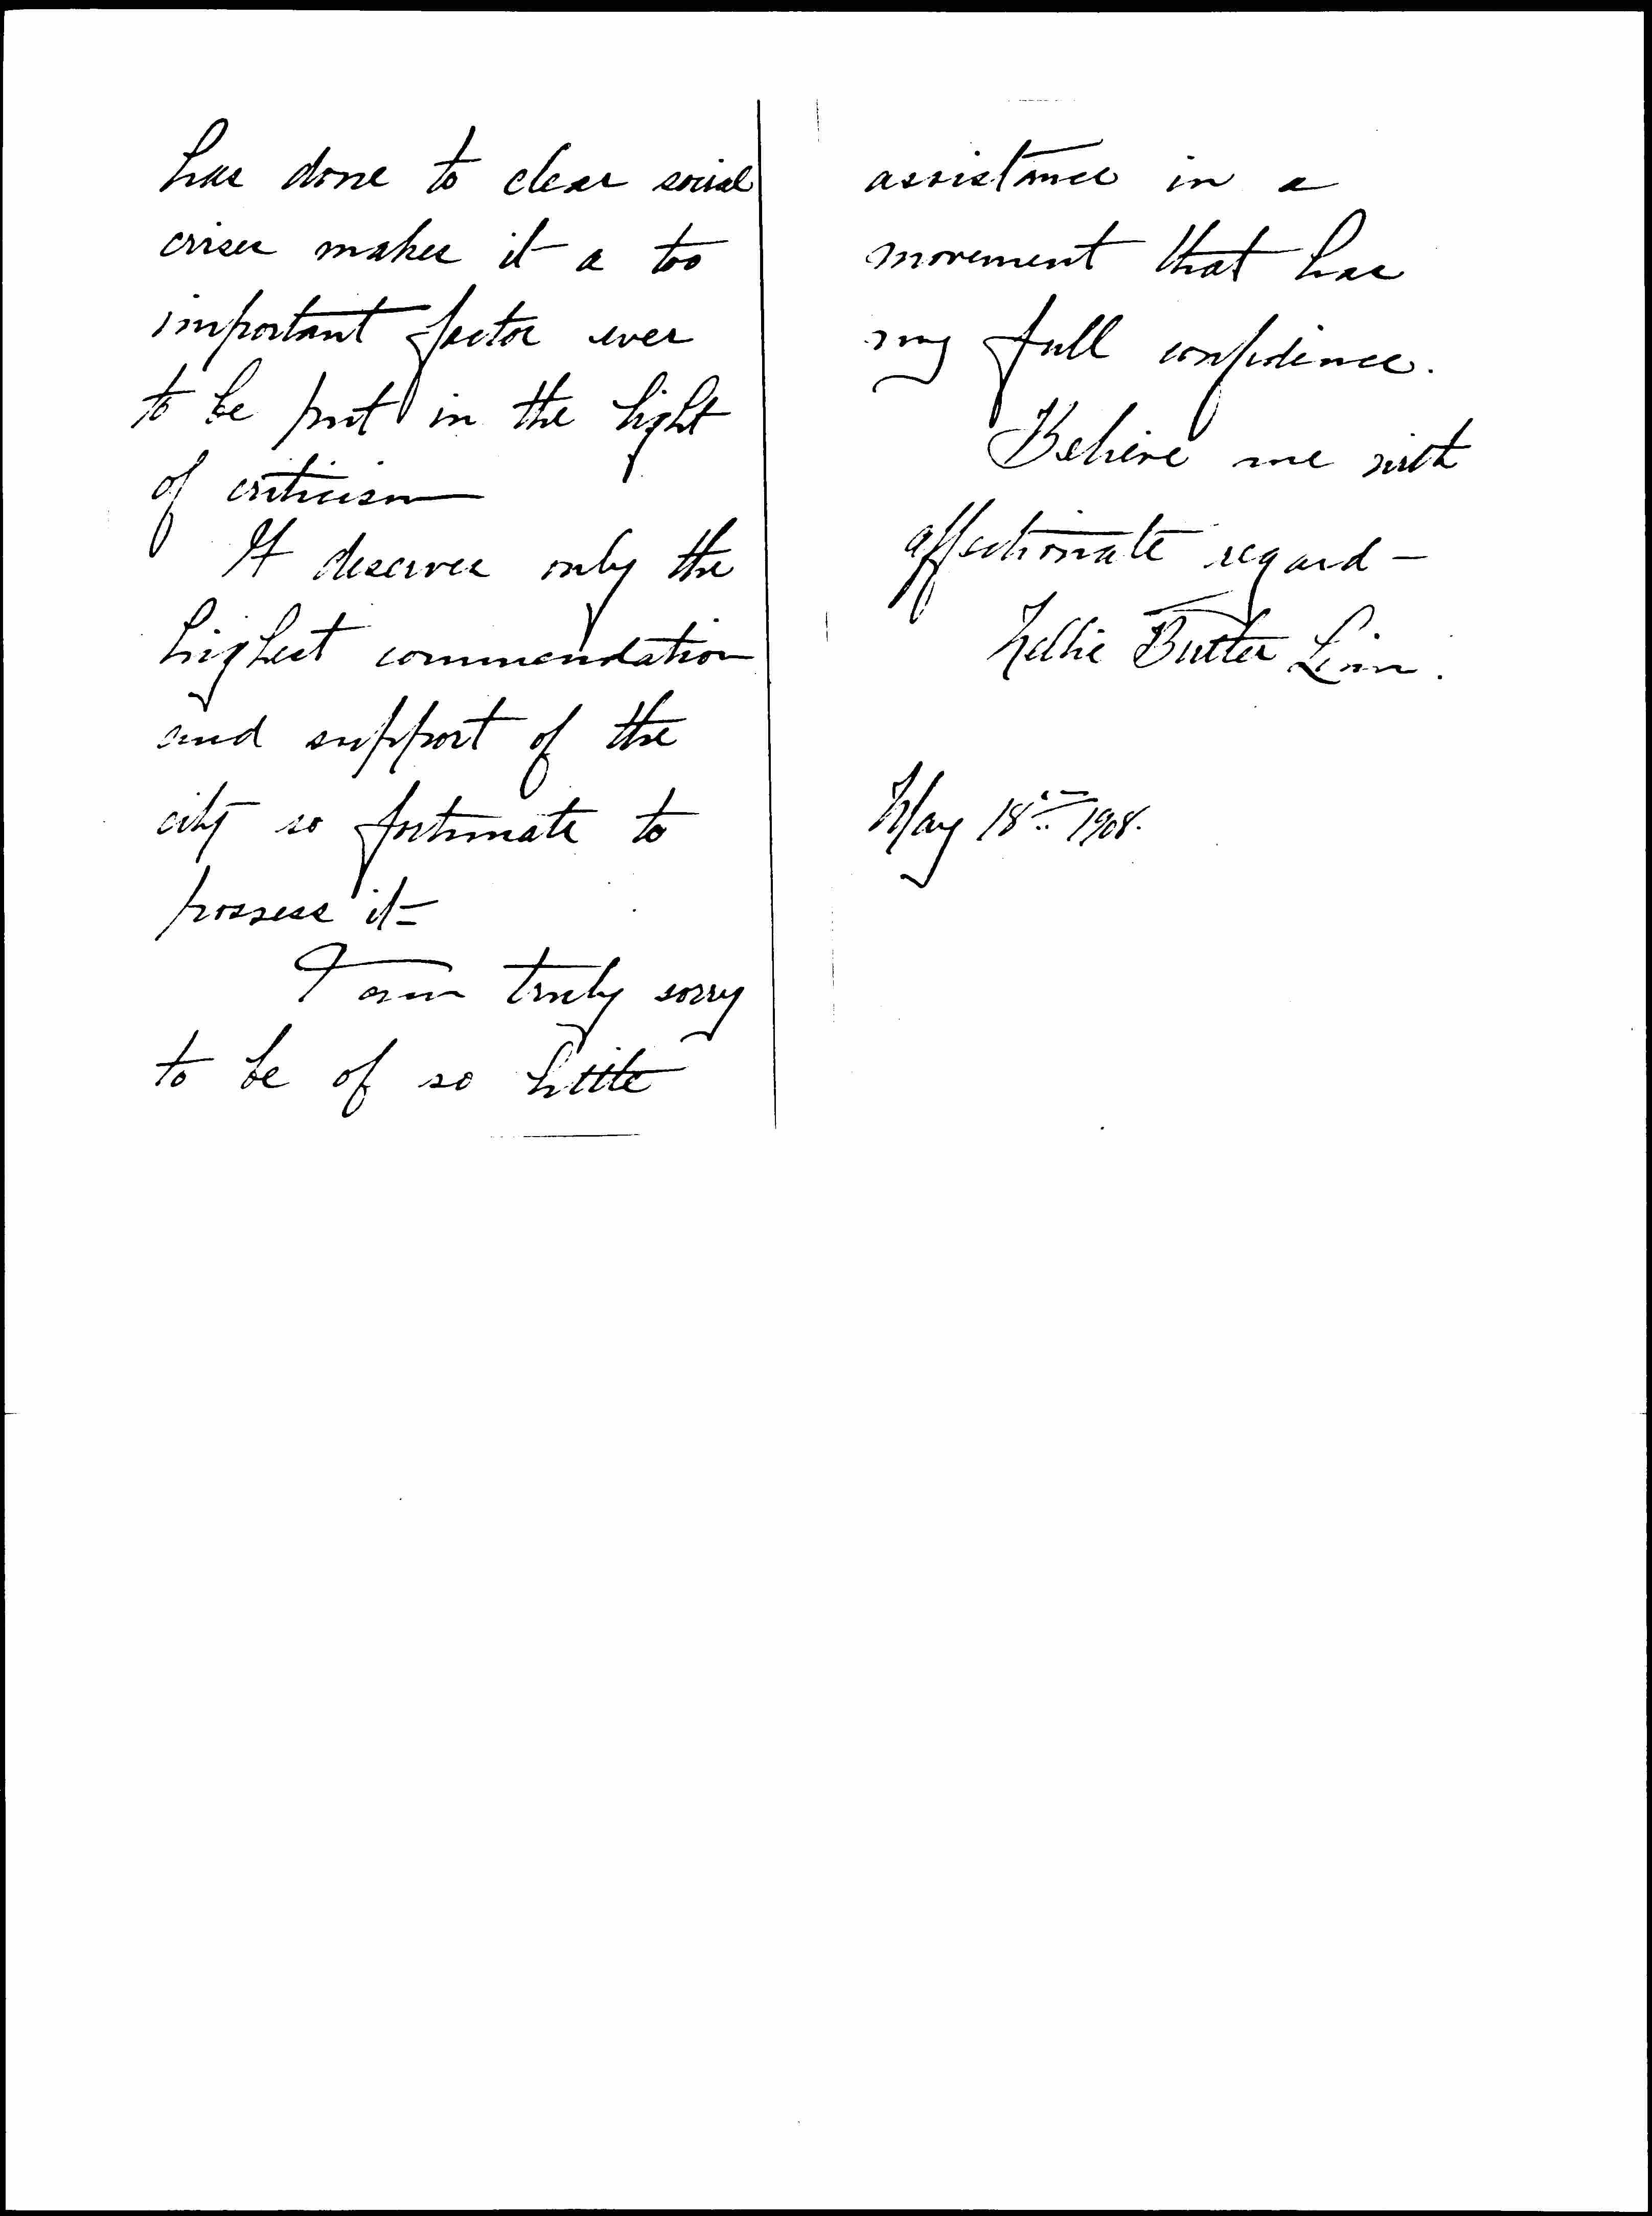 has done to clear social
crises makes it a too
important factor ever
to be put in the light
of criticism
It deserves only the
highest commendation
and support of the
city so fortunate to
possess it-
I am truly sorry
to be of so little
assistance in a
movement that has
my full confidence.
Believe me with
affectionate regard -
Nellie Butler Linn.
May 18th 1908.